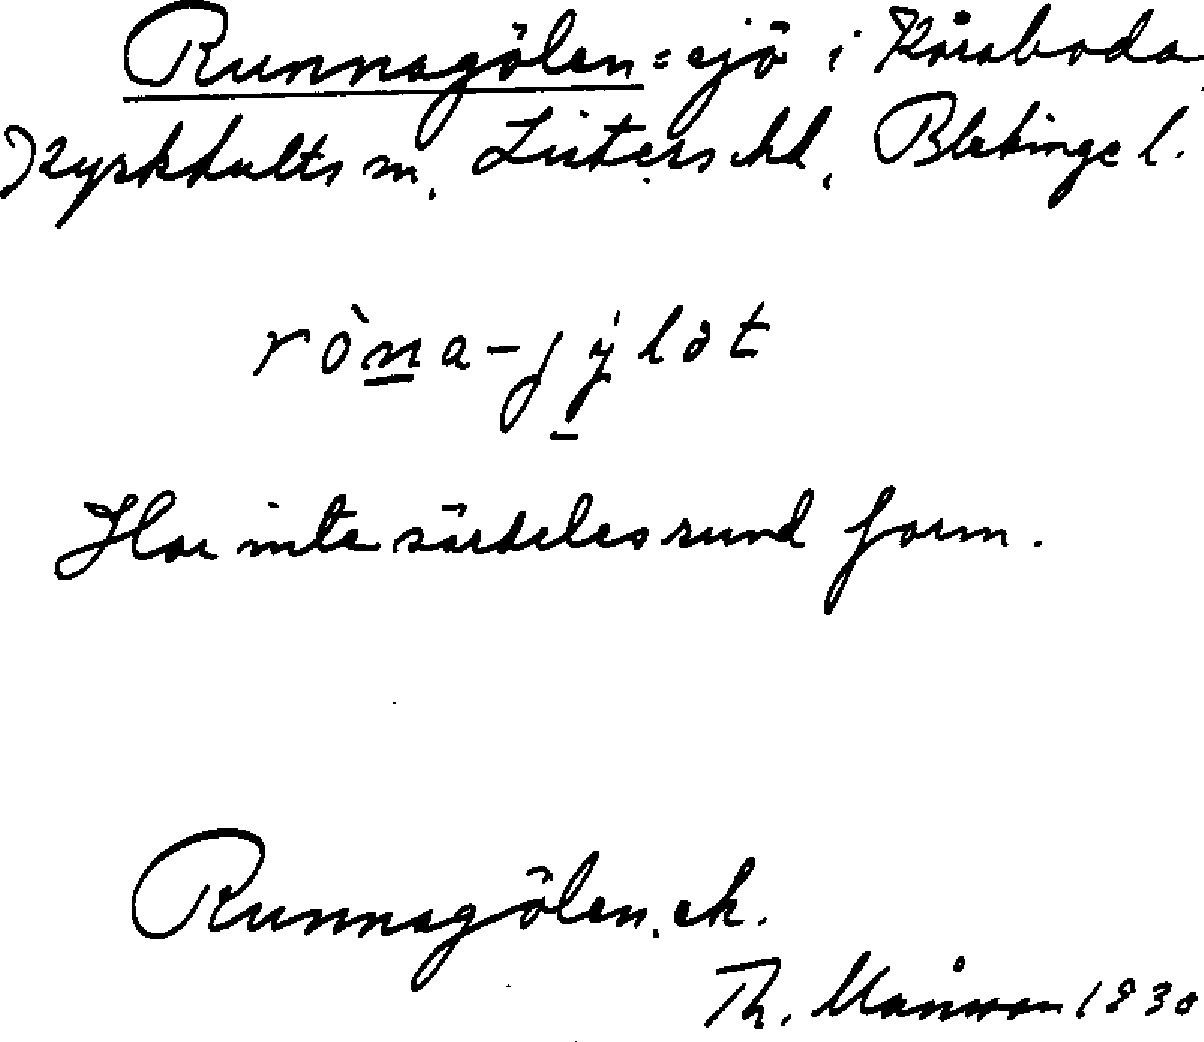 Runnagölen = sjö i Kåraboda,
Kyrkhults sn, Listers hd, Blekinge l.
ròna-jýlǝt
Har inte särdeles rund form.
Runnagölen, ek.
Th. Månsson 1930